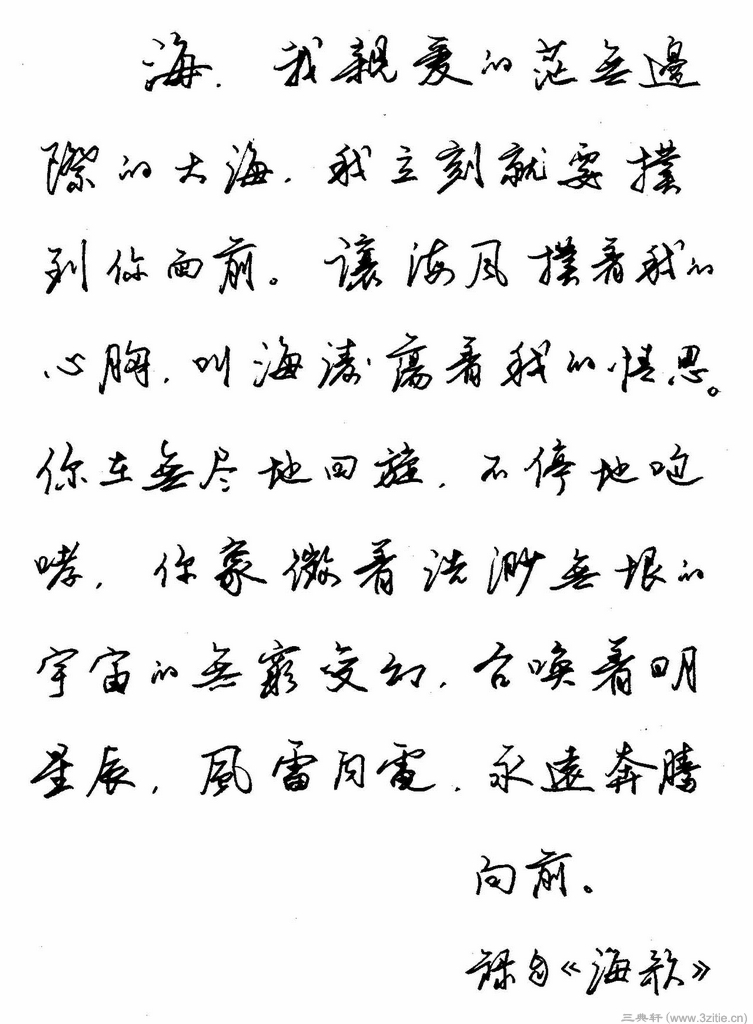 海，我親爱的茫無邊
際的大海，我立刻就要撲
到你面前。讓海风撲着我的
心胸，叫海濤蕩着我的情思。
你在無尽地回旋，不停地咆
哮，你象徵着浩渺無垠的
宇宙的無窮变幻，召唤着明
星辰，風雷闪電，永遠奔騰
向前。
録自《海歌》
三典轩(www.3zitie.cn)